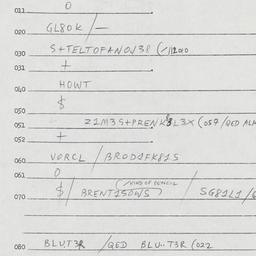 011 O
020 GL80K /—
030 S+TELTOFANOV38 (
031 +
040 HOWT
050 $
051 Z1M3S+PRENK8L3X (057 /QED ALM
052 +
060 VORCL / BRODOFKB1S
061 O
070 $ / BRENT150WS ) / SG81L1 /
080 BLUT3R /QED BLU..T3R (022